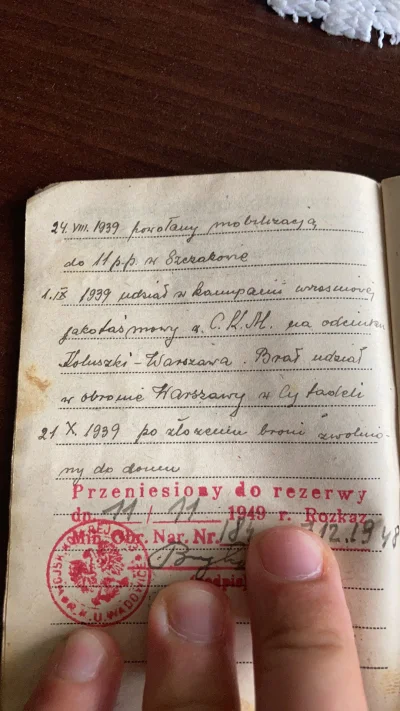 24. VIII. 1939 powołany mobilizacją
do 11 p.p. w Szczakowie
1. IX 1939 udział w kampanii wrześniowej
jako taśmowy
C.K.M. na odcinku
Koluszki - Warszawa. Brał udział
w obronie Warszawy w Cytadeli
21 X. 1939 po złożeniu broni zwolnio-
ny do domu
Przeniesiony do rezerwy
dn. 11 / 11 1949 r. Rozkaz
Min. Obr. Nar. Nr.
12.1948
WADOWIC